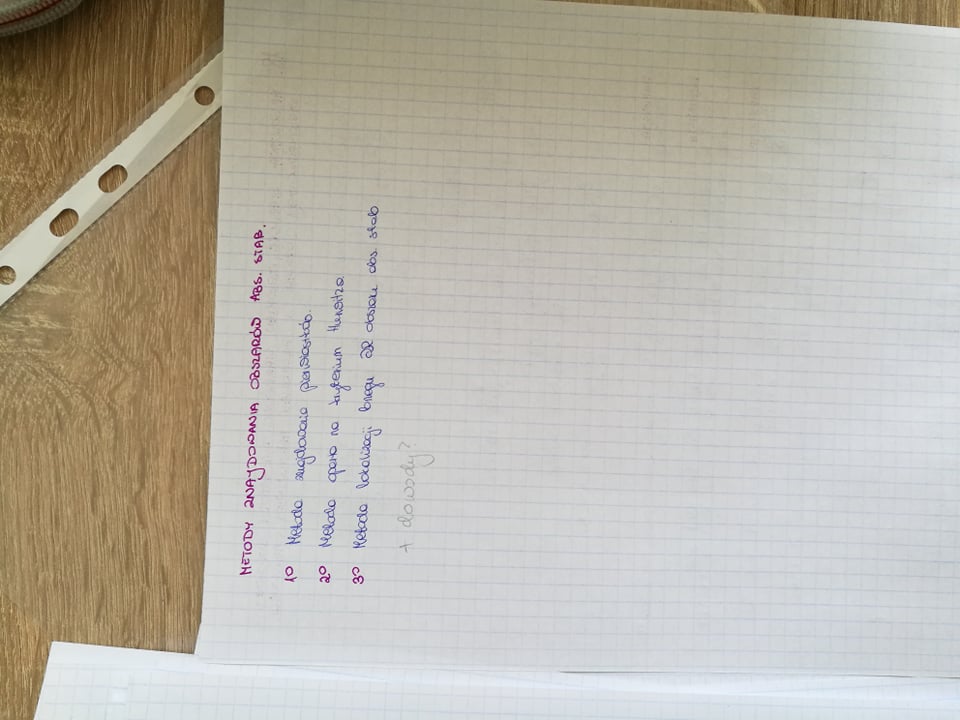 METODY ZNAJDOWANIA OBSZARÓW ABS. STAB.
1° Metoda znajdowania pierwiastków.
2° Metoda oparta na kryterium Hurwitza.
3° Metoda lokalizacji brzegu ∂R obszaru abs. stab
+ dowody?